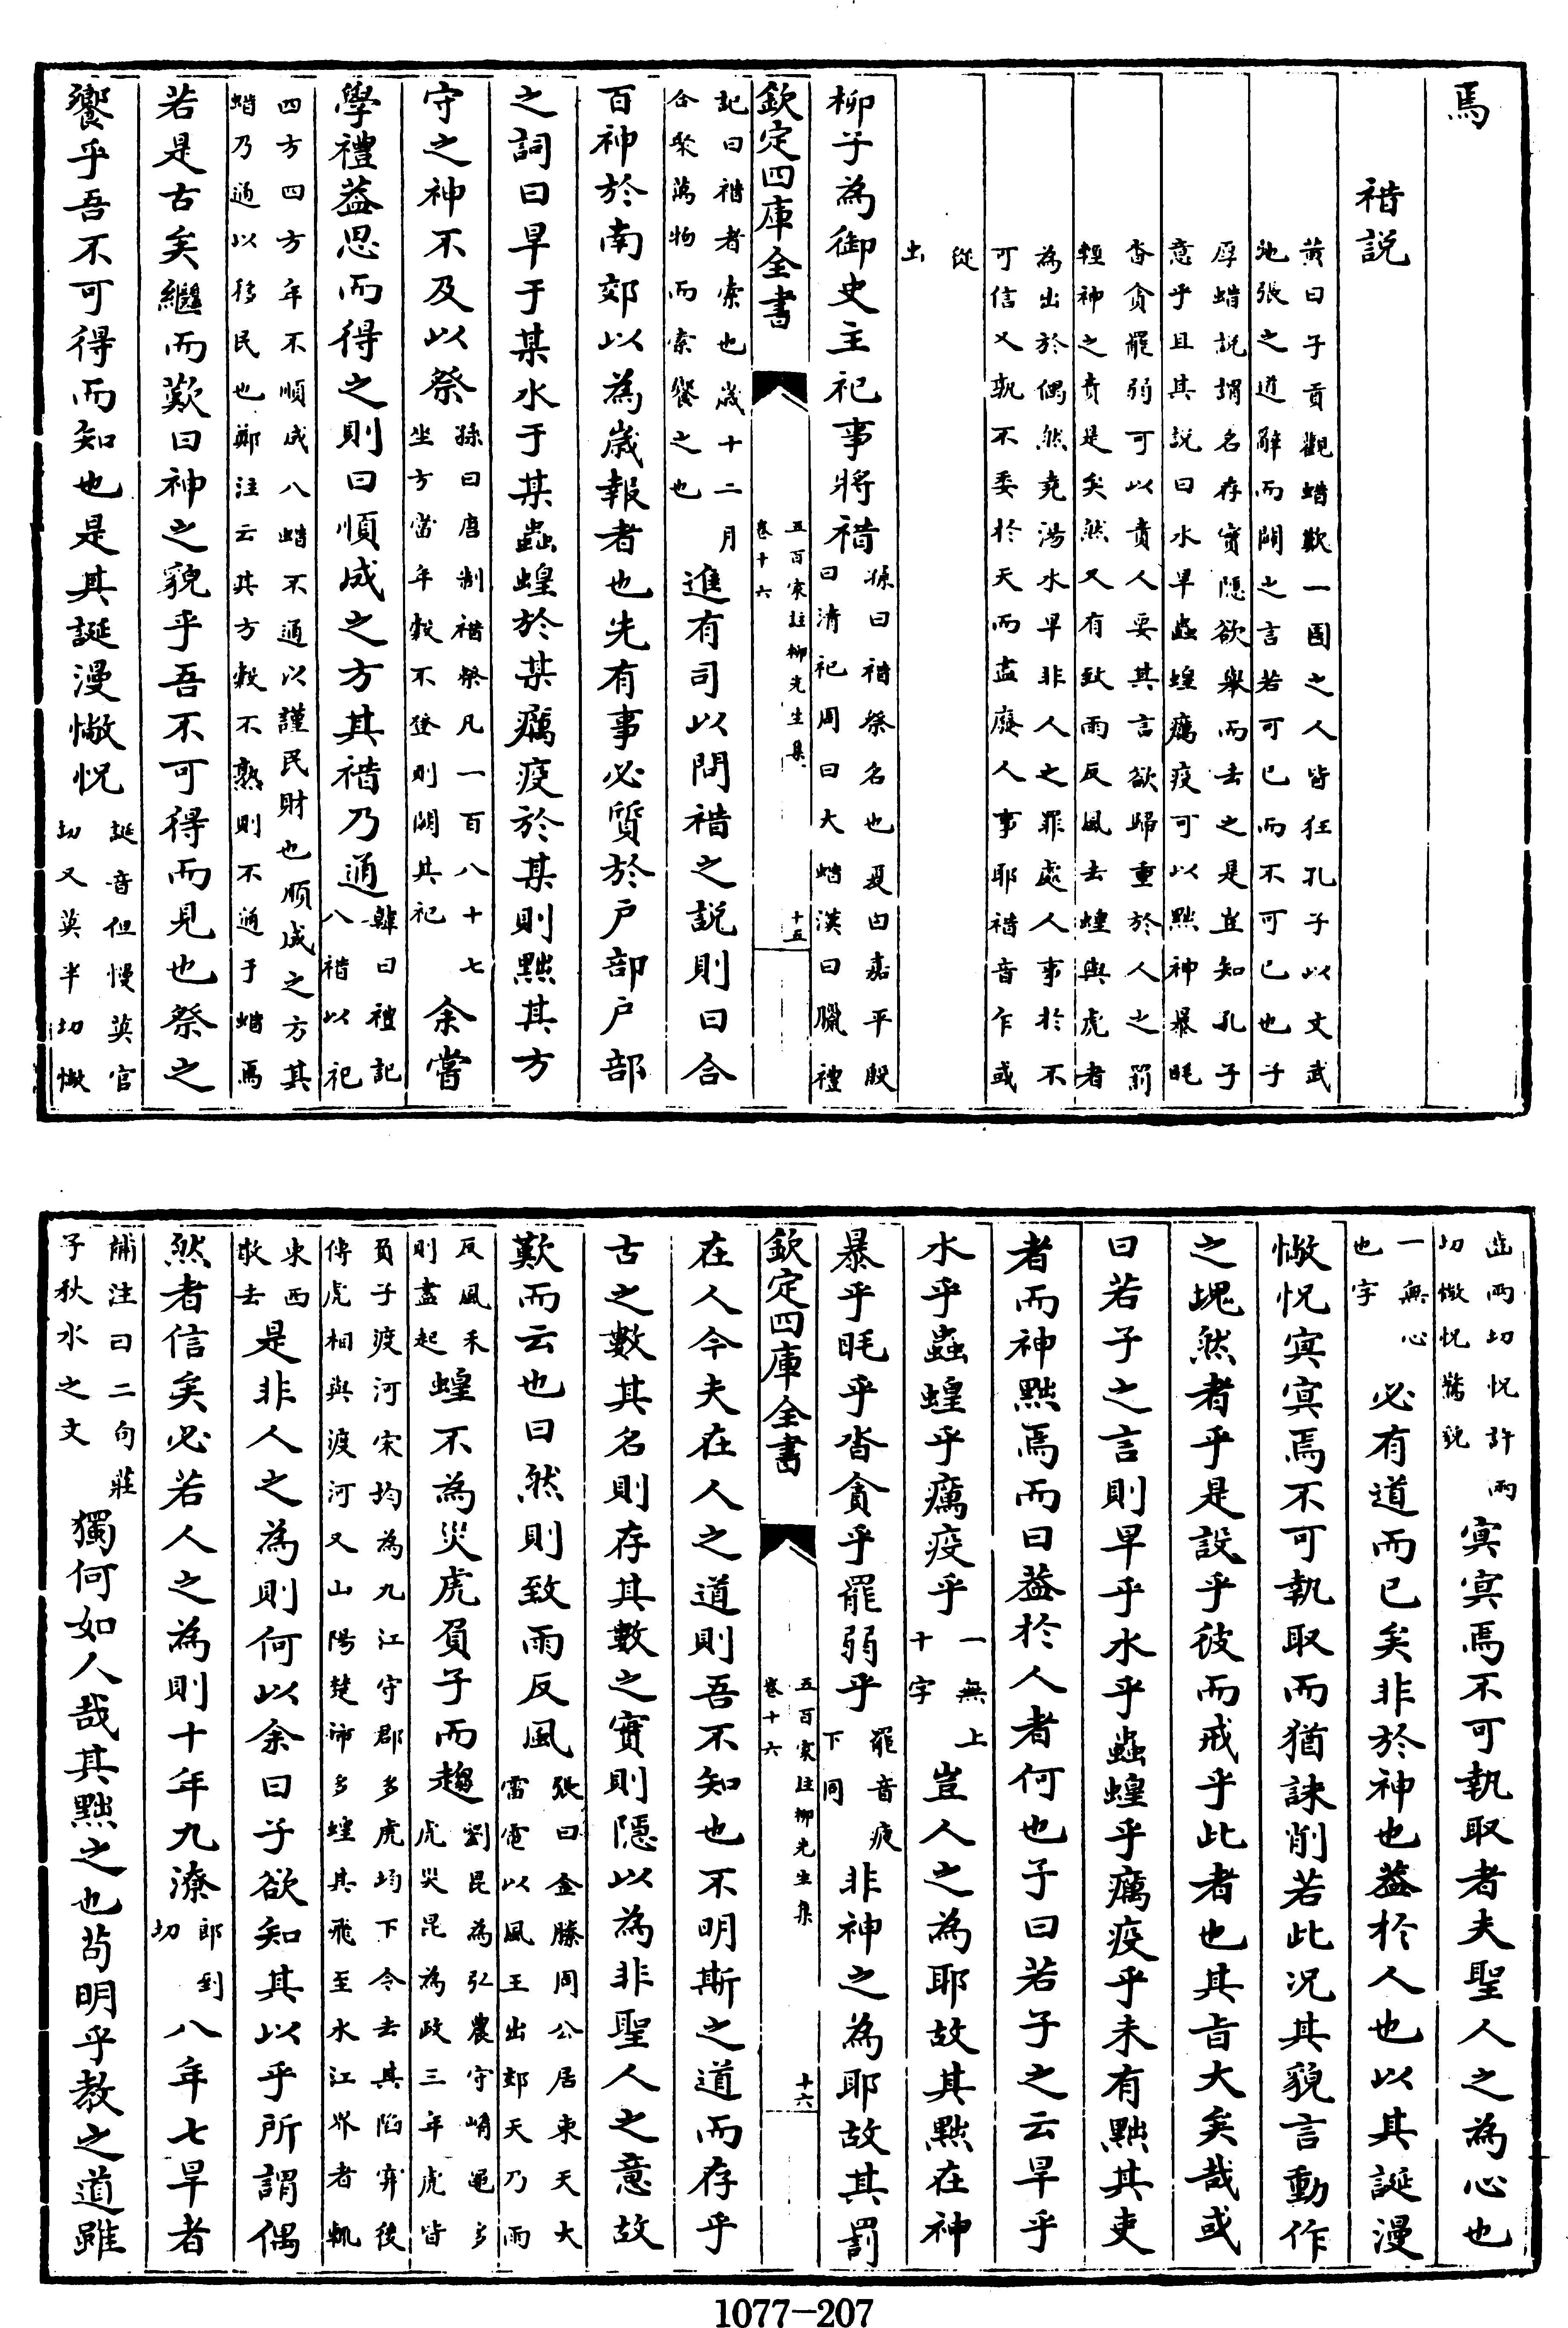 焉
䄍説
黄曰子貢觀蜡歎一國之人皆狂孔子以文武
弛張之道辭而闢之言若可已而不可已也子
厚蜡説謂名存實隠欲舉而去之是豈知孔子
意乎且其説曰水旱蟲蝗癘疫可以黜神暴眊
沓貪罷弱可以責人要其言欲歸重於人之罰
輕神之責是矣然又有致雨反風去蝗與虎者
為出於偶然堯湯水旱非人之罪處人事於不
可信又孰不委於天而盡廢人事耶䄍音乍或
從
虫
柳子為御史主祀事將䄍
孫曰䄍祭名也夏曰嘉平殷
曰清祀周曰大蜡漢曰臘禮
欽定四庫全書
五百家註柳先生集
卷十六
十五
記曰䄍者索也歲十二月
合聚萬物而索饗之也
進有司以問䄍之説則曰合
百神於南郊以為歲報者也先有事必質於户部户部
之詞曰旱于某水于某蟲蝗於某癘疫於某則黜其方
守之神不及以祭
孫曰唐制䄍祭凡一百八十七
坐方當年穀不登則闕其祀
余嘗
學禮葢思而得之則曰順成之方其䄍乃通
韓曰禮記
八䄍以祀
四方四方年不順成八蜡不通以謹民財也順成之方其
蜡乃通以移民也鄭注云其方穀不熟則不通于蜡焉
若是古矣繼而歎曰神之貌乎吾不可得而見也祭之
饗乎吾不可得而知也是其誕漫惝怳
誕音但慢莫官
切又莫半切惝
齒兩切怳許兩
切惝怳驚貌
冥冥焉不可執取者夫聖人之為心也
一無心
也字
必有道而已矣非於神也葢於人也以其誕漫
惝怳冥冥焉不可執取而猶誅削若此况其貌言動作
之塊然者乎是設乎彼而戒乎此者也其旨大矣哉或
曰若子之言則旱乎水乎蟲蝗乎癘疫乎未有黜其吏
者而神黜焉而曰葢於人者何也子曰若子之云旱乎
水乎蟲蝗乎癘疫乎
一無上
十字
豈人之為耶故其黜在神
暴乎眊乎沓貪乎罷弱乎
罷音疲
下同
非神之為耶故其罰
欽定四庫全書
五百家註柳先生集
卷十六
十六
在人今夫在人之道則吾不知也不明斯之道而存乎
古之數其名則存其數之實則隱以為非聖人之意故
歎而云也曰然則致雨反風
張曰金縢周公居東天大
雷電以風王出郊天乃雨
反風禾
則盡起
蝗不為災虎負子而趨
劉昆為弘農守崤黽多
虎災昆為政三年虎皆
負子渡河宋均為九江守郡多虎均下令去其陷穽後
傳虎相與渡河又山陽楚沛多蝗其飛至水江界者輒
東西
散去
是非人之為則何以余曰子欲知其以乎所謂偶
然者信矣必若人之為則十年九潦
郎到
切
八年七旱者
補注曰二句莊
子秋水之文
獨何如人哉其黜之也苟明乎教之道雖
1077-207